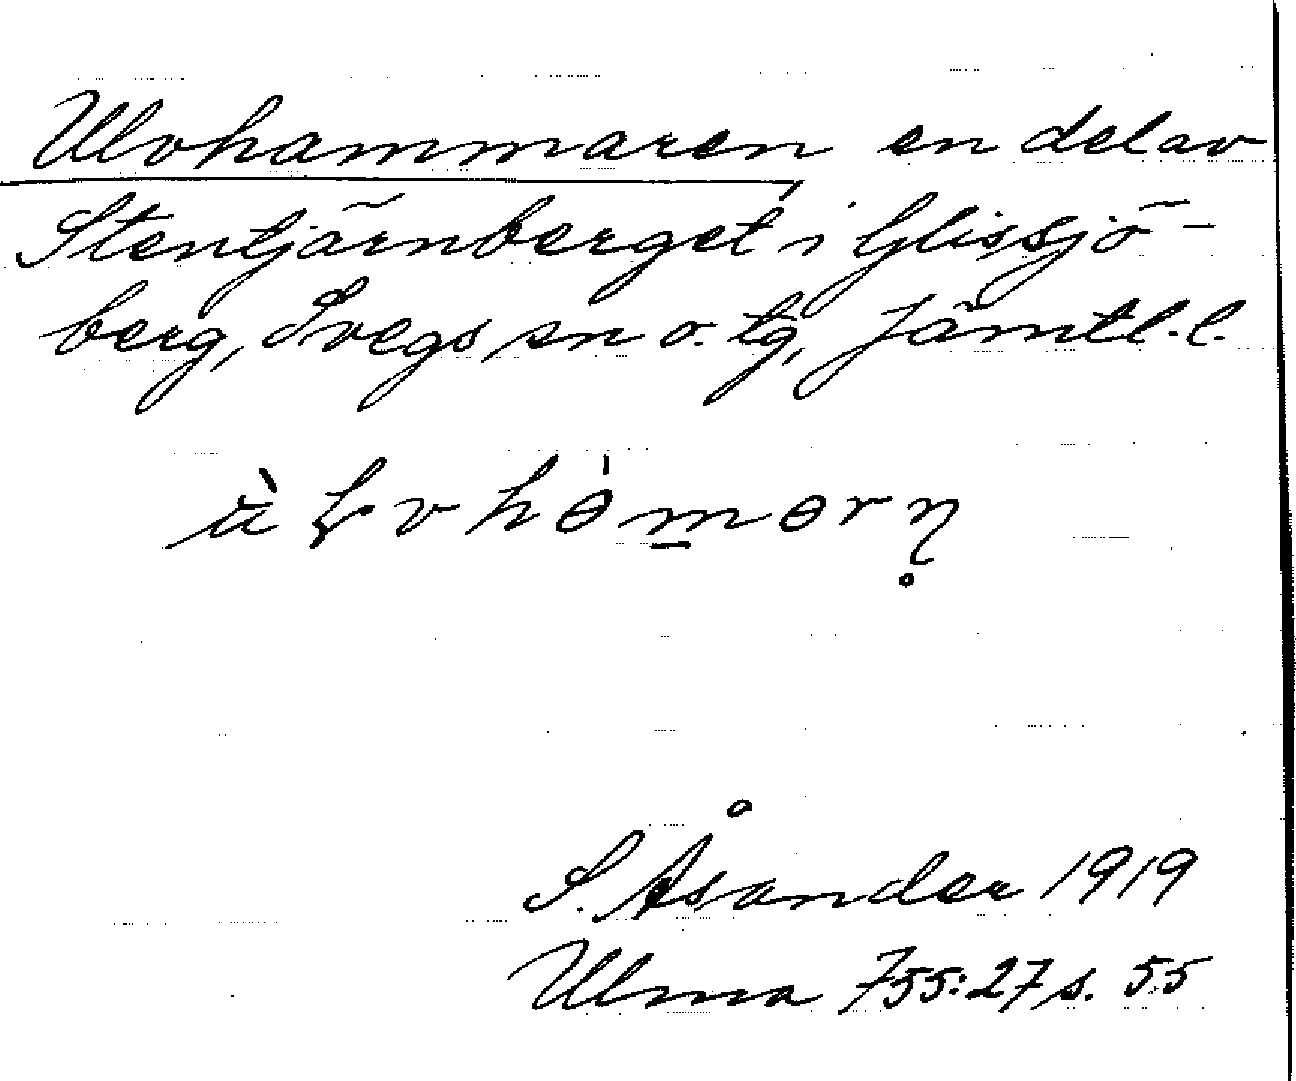 Ulvhammaren en del av
Stentjärnberget i Glissjö-
berg, Svegs sn o. tg, Jämtl. l.
S. Åsander 1919
Ulma 755:27 s. 55